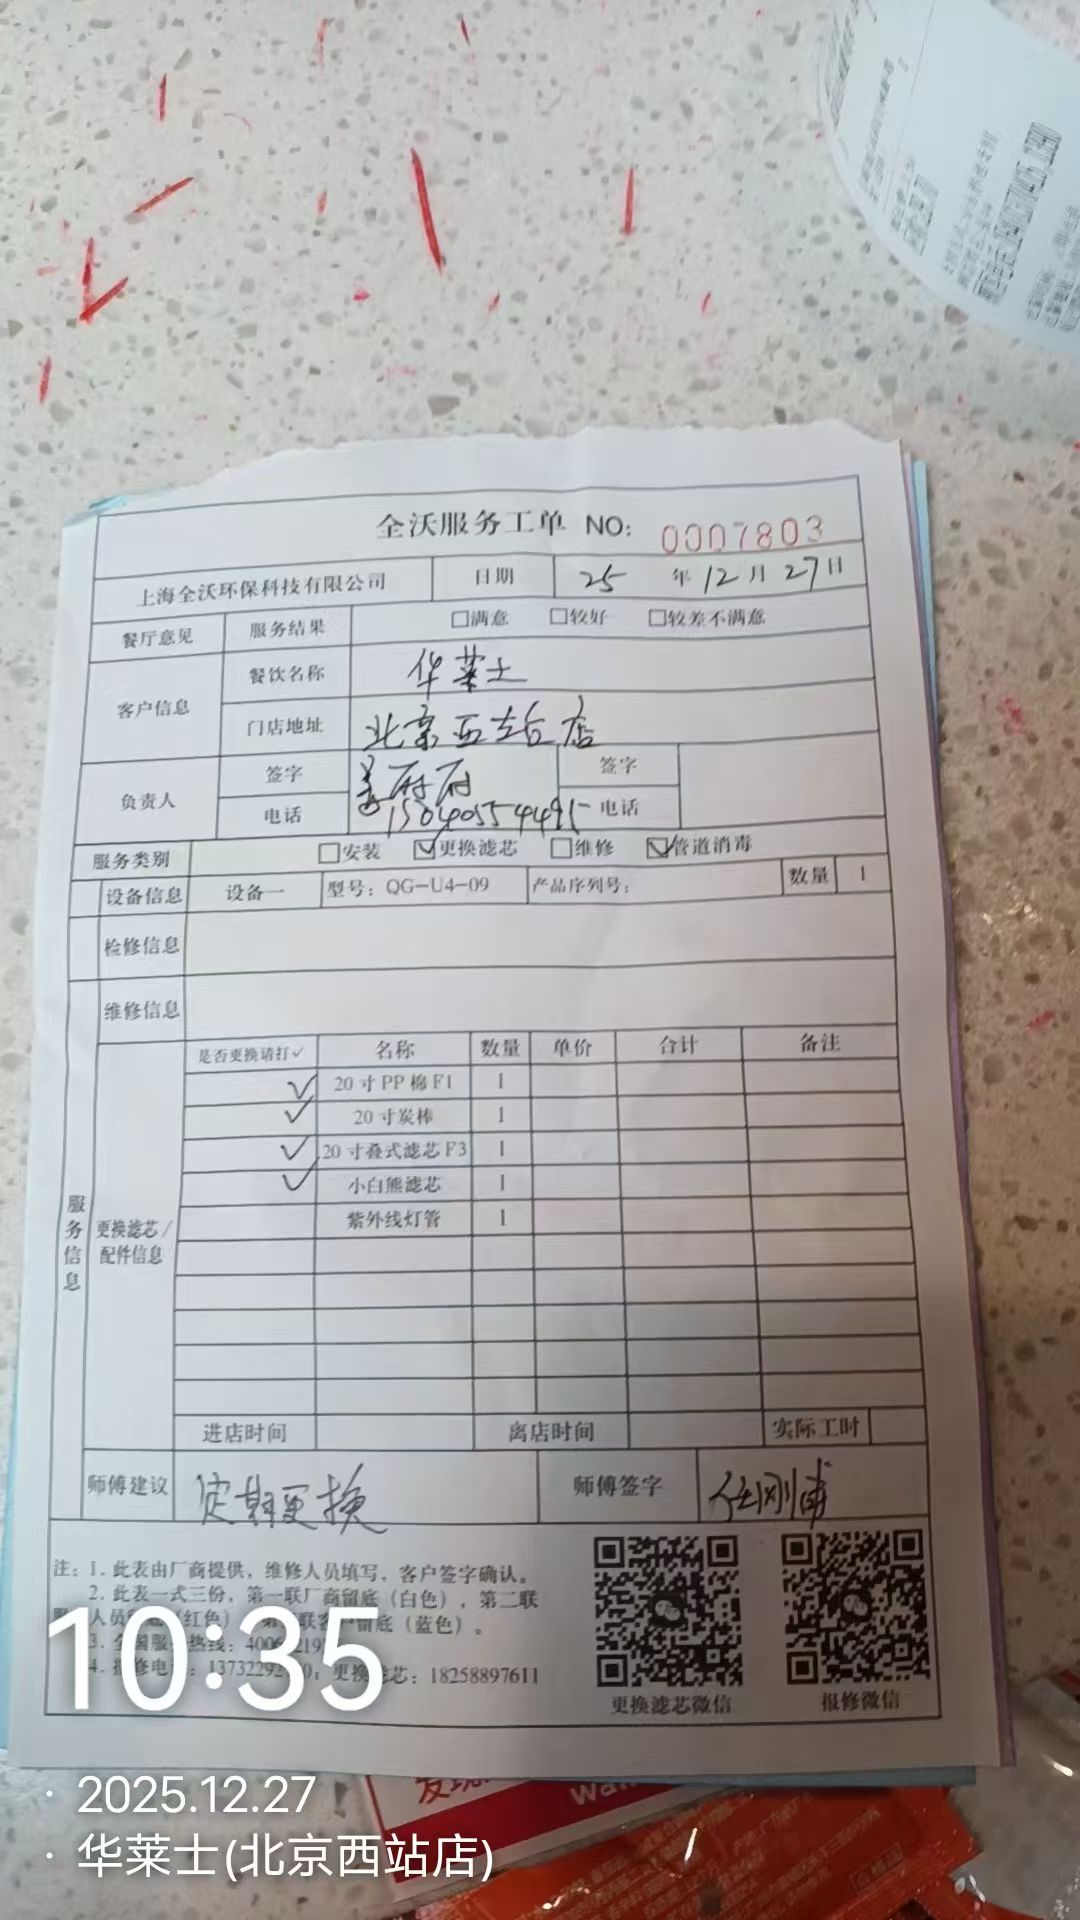 全沃服务工单 NO: 0007803
上海全沃环保科技有限公司 日期 25 年 12 月 27 日
餐厅意见 服务结果 □满意 □较好 □较差不满意
客户信息 餐饮名称 华莱士
门店地址 北京西站店
负责人 签字 签字
电话 15040554495 电话
服务类别 □安装 ☑更换滤芯 □维修 ☑管道消毒
设备信息 设备一 型号: QG-U4-09 产品序列号: 数量 1
检修信息
维修信息
服务信息
更换滤芯/配件信息
是否更换请打✓ 名称 数量 单价 合计 备注
✓ 20寸PP棉F1 1
✓ 20寸炭棒 1
✓ 20寸叠式滤芯F3 1
✓ 小白熊滤芯 1
紫外线灯管 1
进店时间 离店时间 实际工时
师傅建议 定期更换 师傅签字
注: 1. 此表由厂商提供，维修人员填写，客户签字确认。
2. 此表一式三份，第一联厂商留底（白色），第二联
人员 （红色） 联客 留底（蓝色）。
3. 全国服 热线: 400
4. 报修电 : 13732292 0; 更换 芯: 18258897611
更换滤芯微信 报修微信
10:35
· 2025.12.27
· 华莱士(北京西站店)